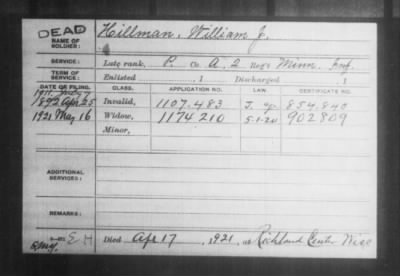 DEAD
NAME OF SOLDIER: Hillman, William J.
SERVICE: Late rank, P. Co. A, 2 Reg't Minn. Inf.
TERM OF SERVICE: Enlisted , 1 Discharged , 1
DATE OF FILING. CLASS. APPLICATION NO. LAW. CERTIFICATE NO.
1892 Apr 25 Invalid, 1107.483 J. 854.840
1921 May 16 Widow, 1174210 5-1-20 902809
Minor,
ADDITIONAL SERVICES:
REMARKS:
EH Died Apr 17, 1921, at Richland Center Wisc